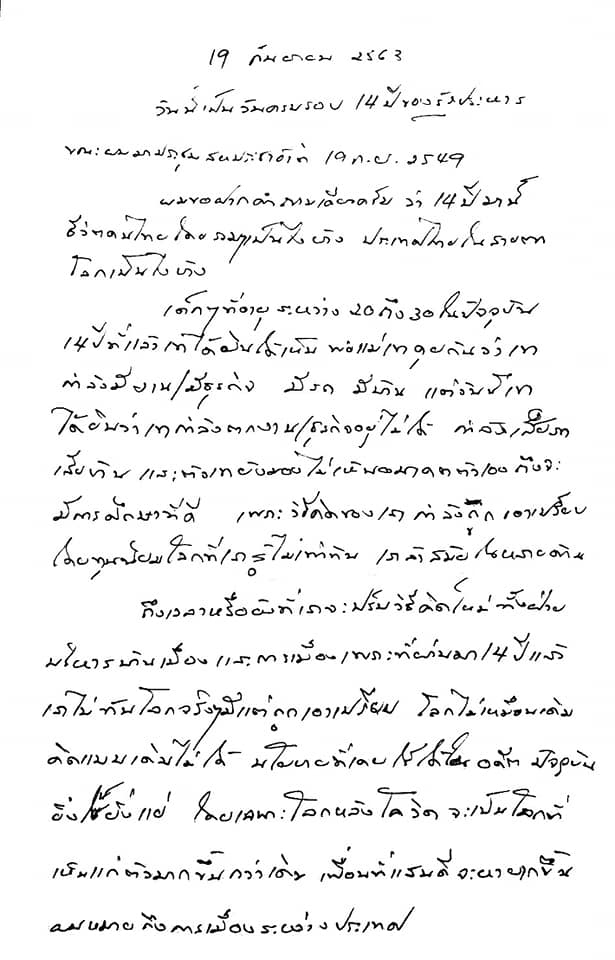 19 กันยายน 2563
วันนี้เป็นวันครบรอบ 14 ปีของรัฐประหาร
ขณะผมมาประชุมสหประชาชาติ 19 ก.ย. 2549
ผมขอฝากคำถามเดียวครับ ว่า 14 ปีมานี้
ชีวิตคนไทยโดยรวมๆเป็นไงบ้าง ประเทศไทยในสายตา
โลกเป็นไงบ้าง
เด็กๆที่อายุระหว่าง 20 ถึง 30 ในปัจจุบัน
14 ปีที่แล้วเขาได้ยินได้เห็น พ่อแม่เขาคุยกันว่าเขา
กำลังมีงาน/มีธุรกิจ มีรถ มีบ้าน แต่วันนี้เขา
ได้ยินว่าเขากำลังตกงาน/ธุรกิจอยู่ไม่ได้ กำลังเสียรถ
เสียบ้าน และตัวเขายังมองไม่เห็นอนาคตตัวเองถึงจะ
มีการศึกษาที่ดี เพราะวิธีคิดของเรากำลังถูกเอาเปรียบ
โดยทุนนิยมโลกที่เรารู้ไม่เท่าทัน เราล้าสมัยในหลายด้าน
ถึงเวลาหรือยังที่เราจะปรับวิธีคิดใหม่ทั้งฝ่าย
บริหารบ้านเมือง และการเมือง เพราะที่ผ่านมา 14 ปีแล้ว
เราไม่ทันโลกจริงๆมีแต่ถูกเอาเปรียบ โลกไม่เหมือนเดิม
คิดแบบเดิมไม่ได้ นโยบายที่เคยใช้ได้ในอดีต ปัจจุบัน
ยิ่งใช้ยิ่งแย่ โดยเฉพาะโลกหลังโควิดจะเป็นโลกที่
เห็นแก่ตัวมากขึ้นกว่าเดิม เพื่อนที่แสนดีจะหายากขึ้น
ผมหมายถึงการเมืองระหว่างประเทศ